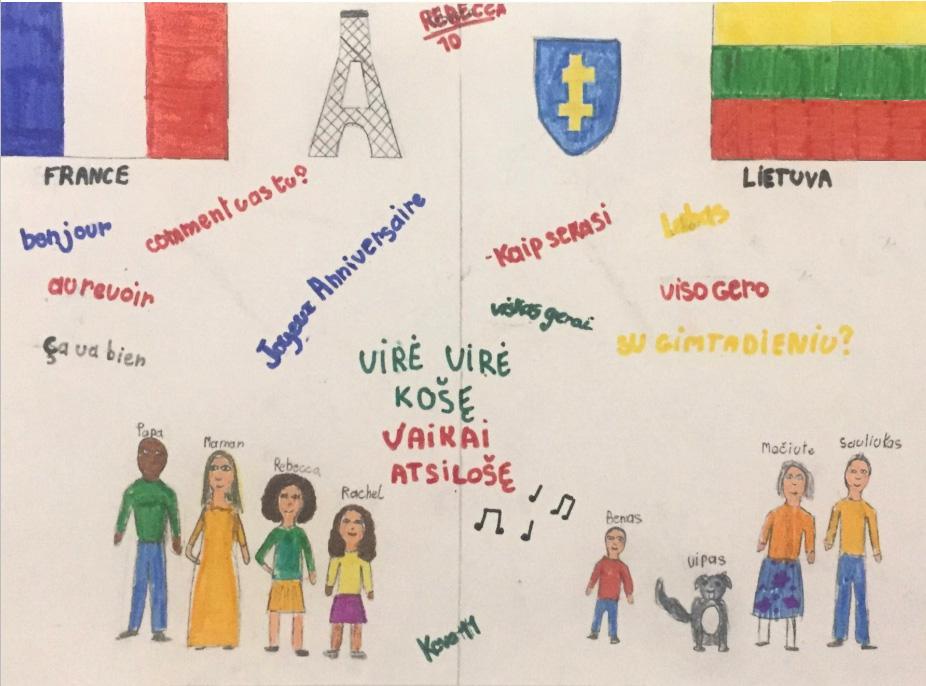 REBECCA
10
FRANCE
LIETUVA
bonjour
comment vas tu?
au revoir
Joyeux Anniversaire
ça va bien
-Kaip sekasi
Labas
viso Gero
viskas gerai
SU GIMTADIENIU?
VIRĖ VIRĖ
KOŠĘ
VAIKAI
ATSILOŠĘ
Papa
Maman
Rebecca
Rachel
Benas
vipas
Močiute
Sauliukas
Kovo 11